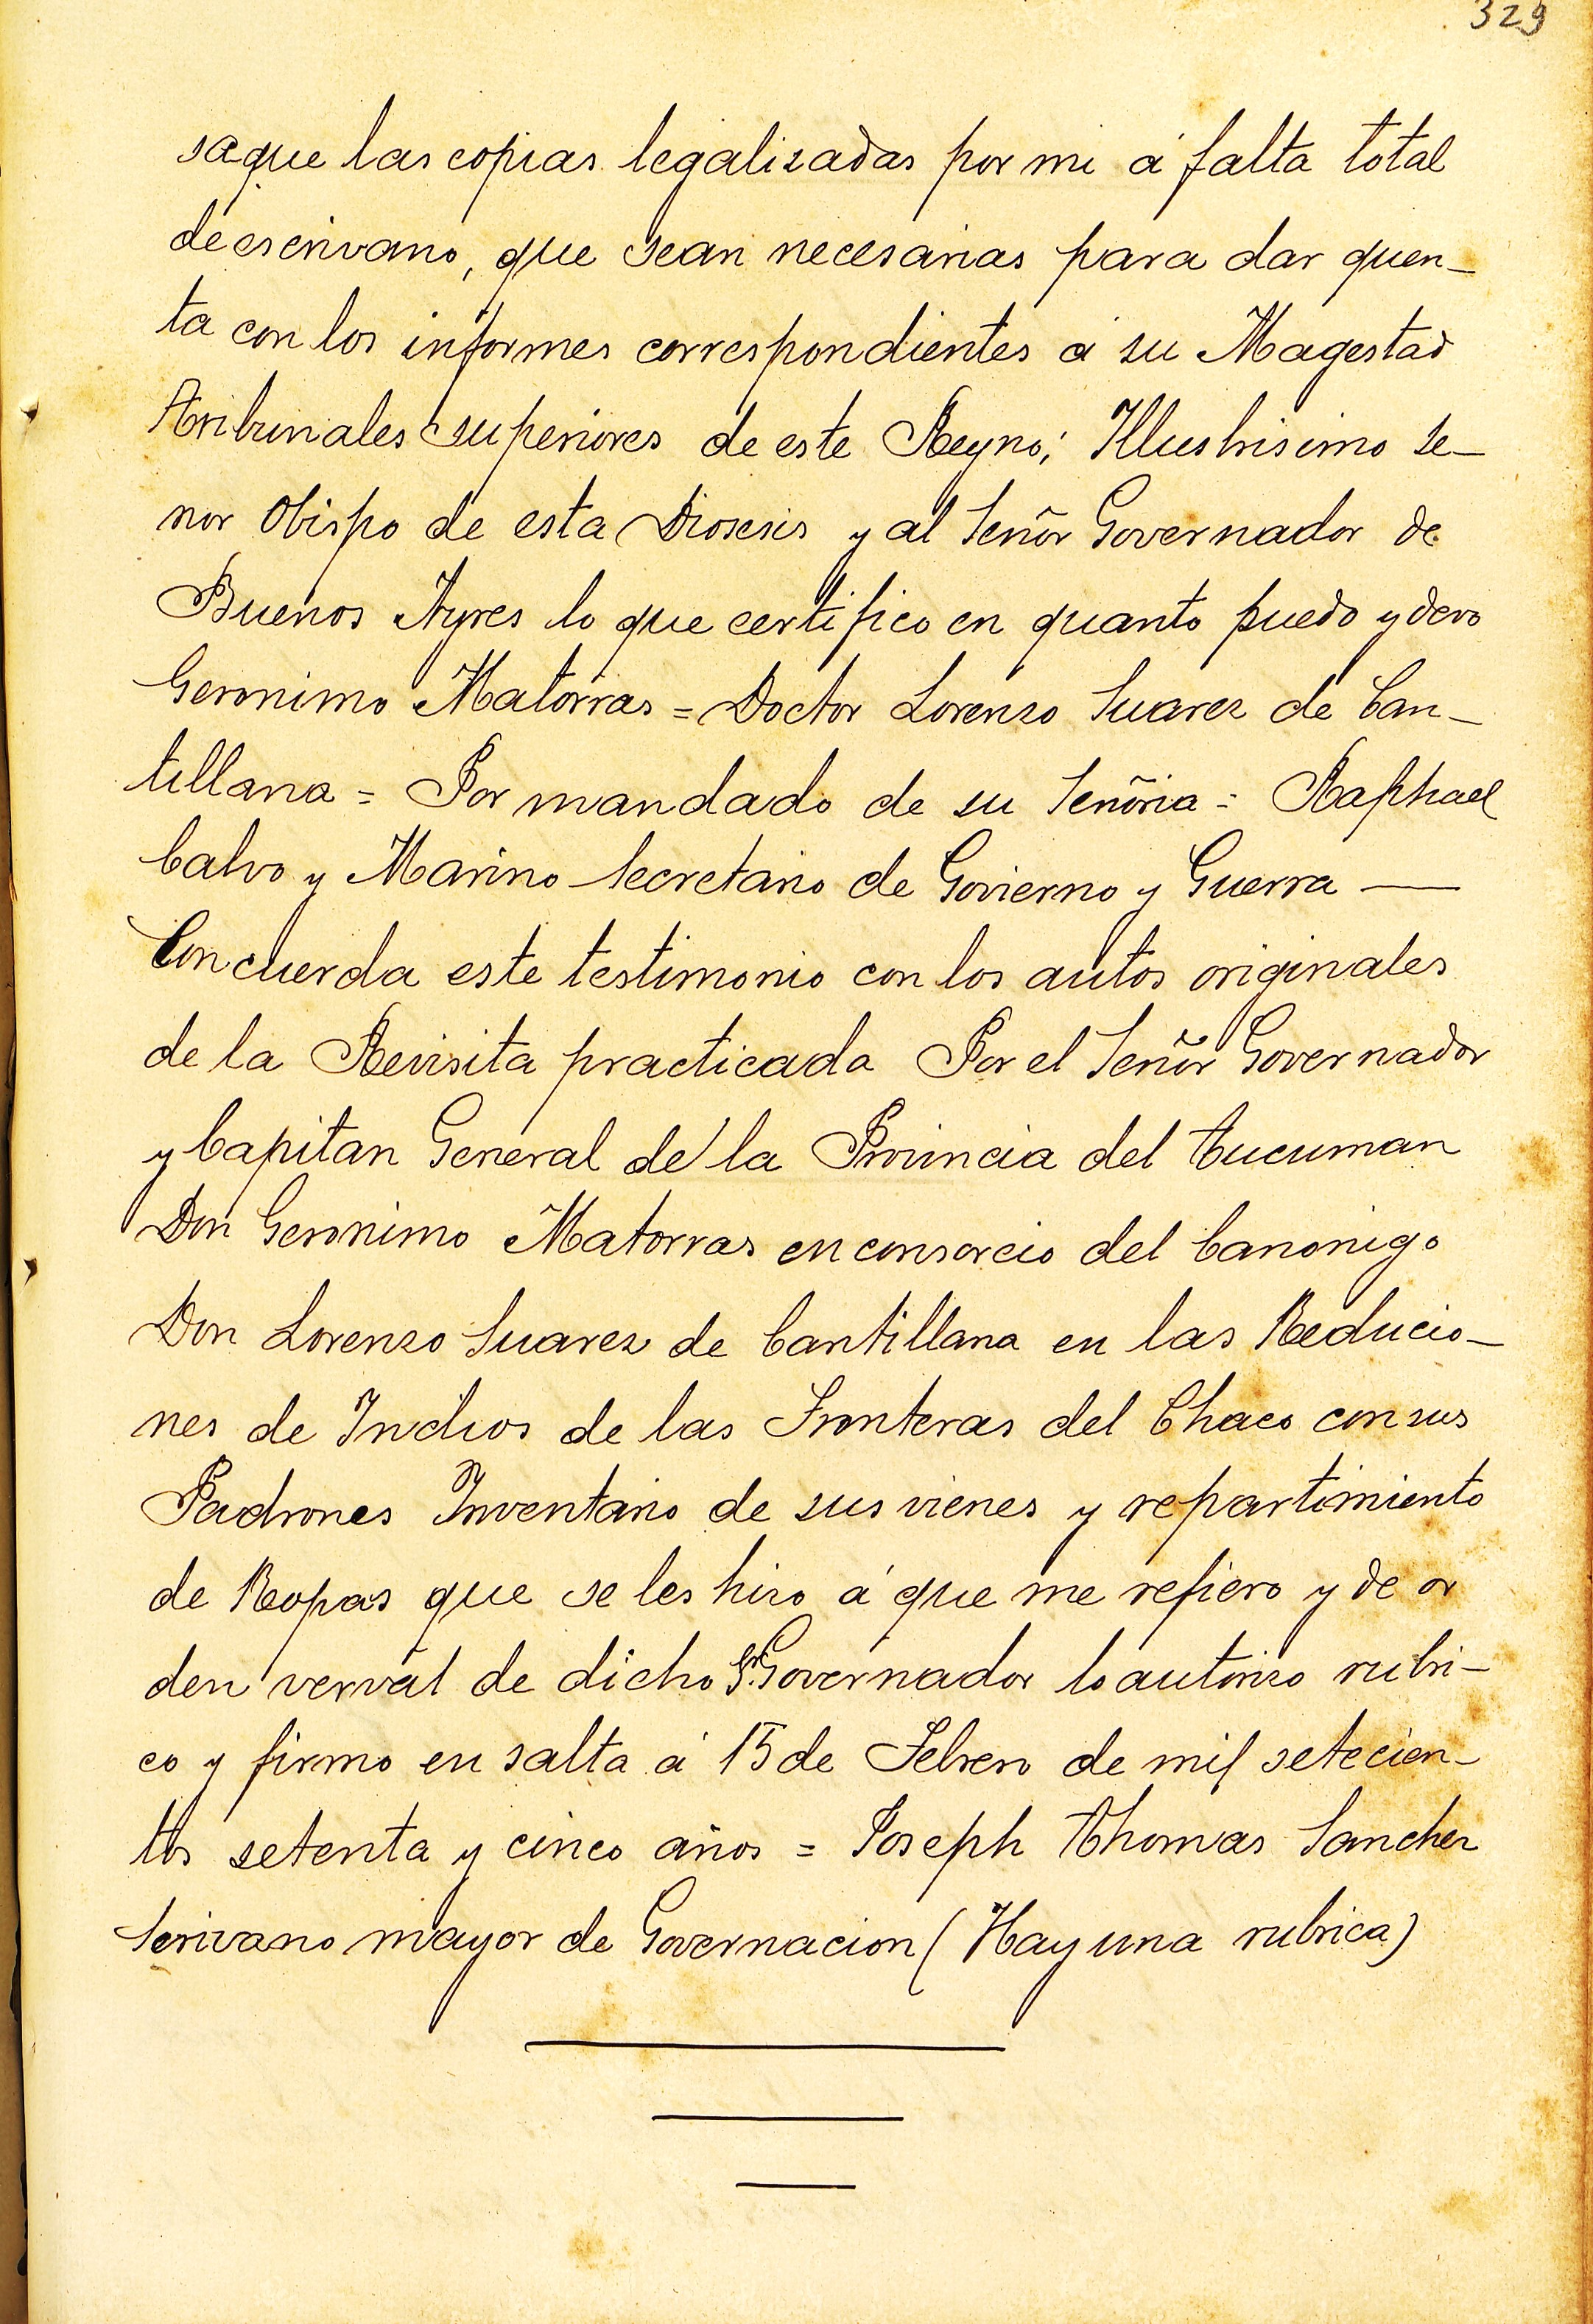 329
saque las copias legalizadas por mi á falta total
de escrivano, que sean necesarias para dar quen-
ta con los informes correspondientes á su Magestad
Tribunales superiores de este Reyno; Illustrisimo se-
nor Obispo de esta Diosesis y al Señor Governador de
Buenos Ayres lo que certifico en quanto puedo y devo
Geronimo Matorras = Doctor Lorenzo Suarez de Can-
tillana = Por mandado de su Señoria = Raphael
Calvo y Marino Secretario de Govierno y Guerra —
Concuerda este testimonio con los autos originales
de la Revisita practicada Por el Señor Governador
y Capitan General de la Provincia del Tucuman
Don Geronimo Matorras en consorcio del Canonigo
Don Lorenzo Suarez de Cantillana en las Reducio-
nes de Indios de las Fronteras del Chaco con sus
Padrones Inventario de sus vienes y repartimiento
de Ropas que se les hizo á que me refiero y de or
den verval de dicho Sr. Governador lo autorizo rubri-
co y firmo en salta á 15 de Febrero de mil setecien-
tos setenta y cinco años = Joseph Thomas Sanchez
Scrivano mayor de Governacion (Hay una rubrica)